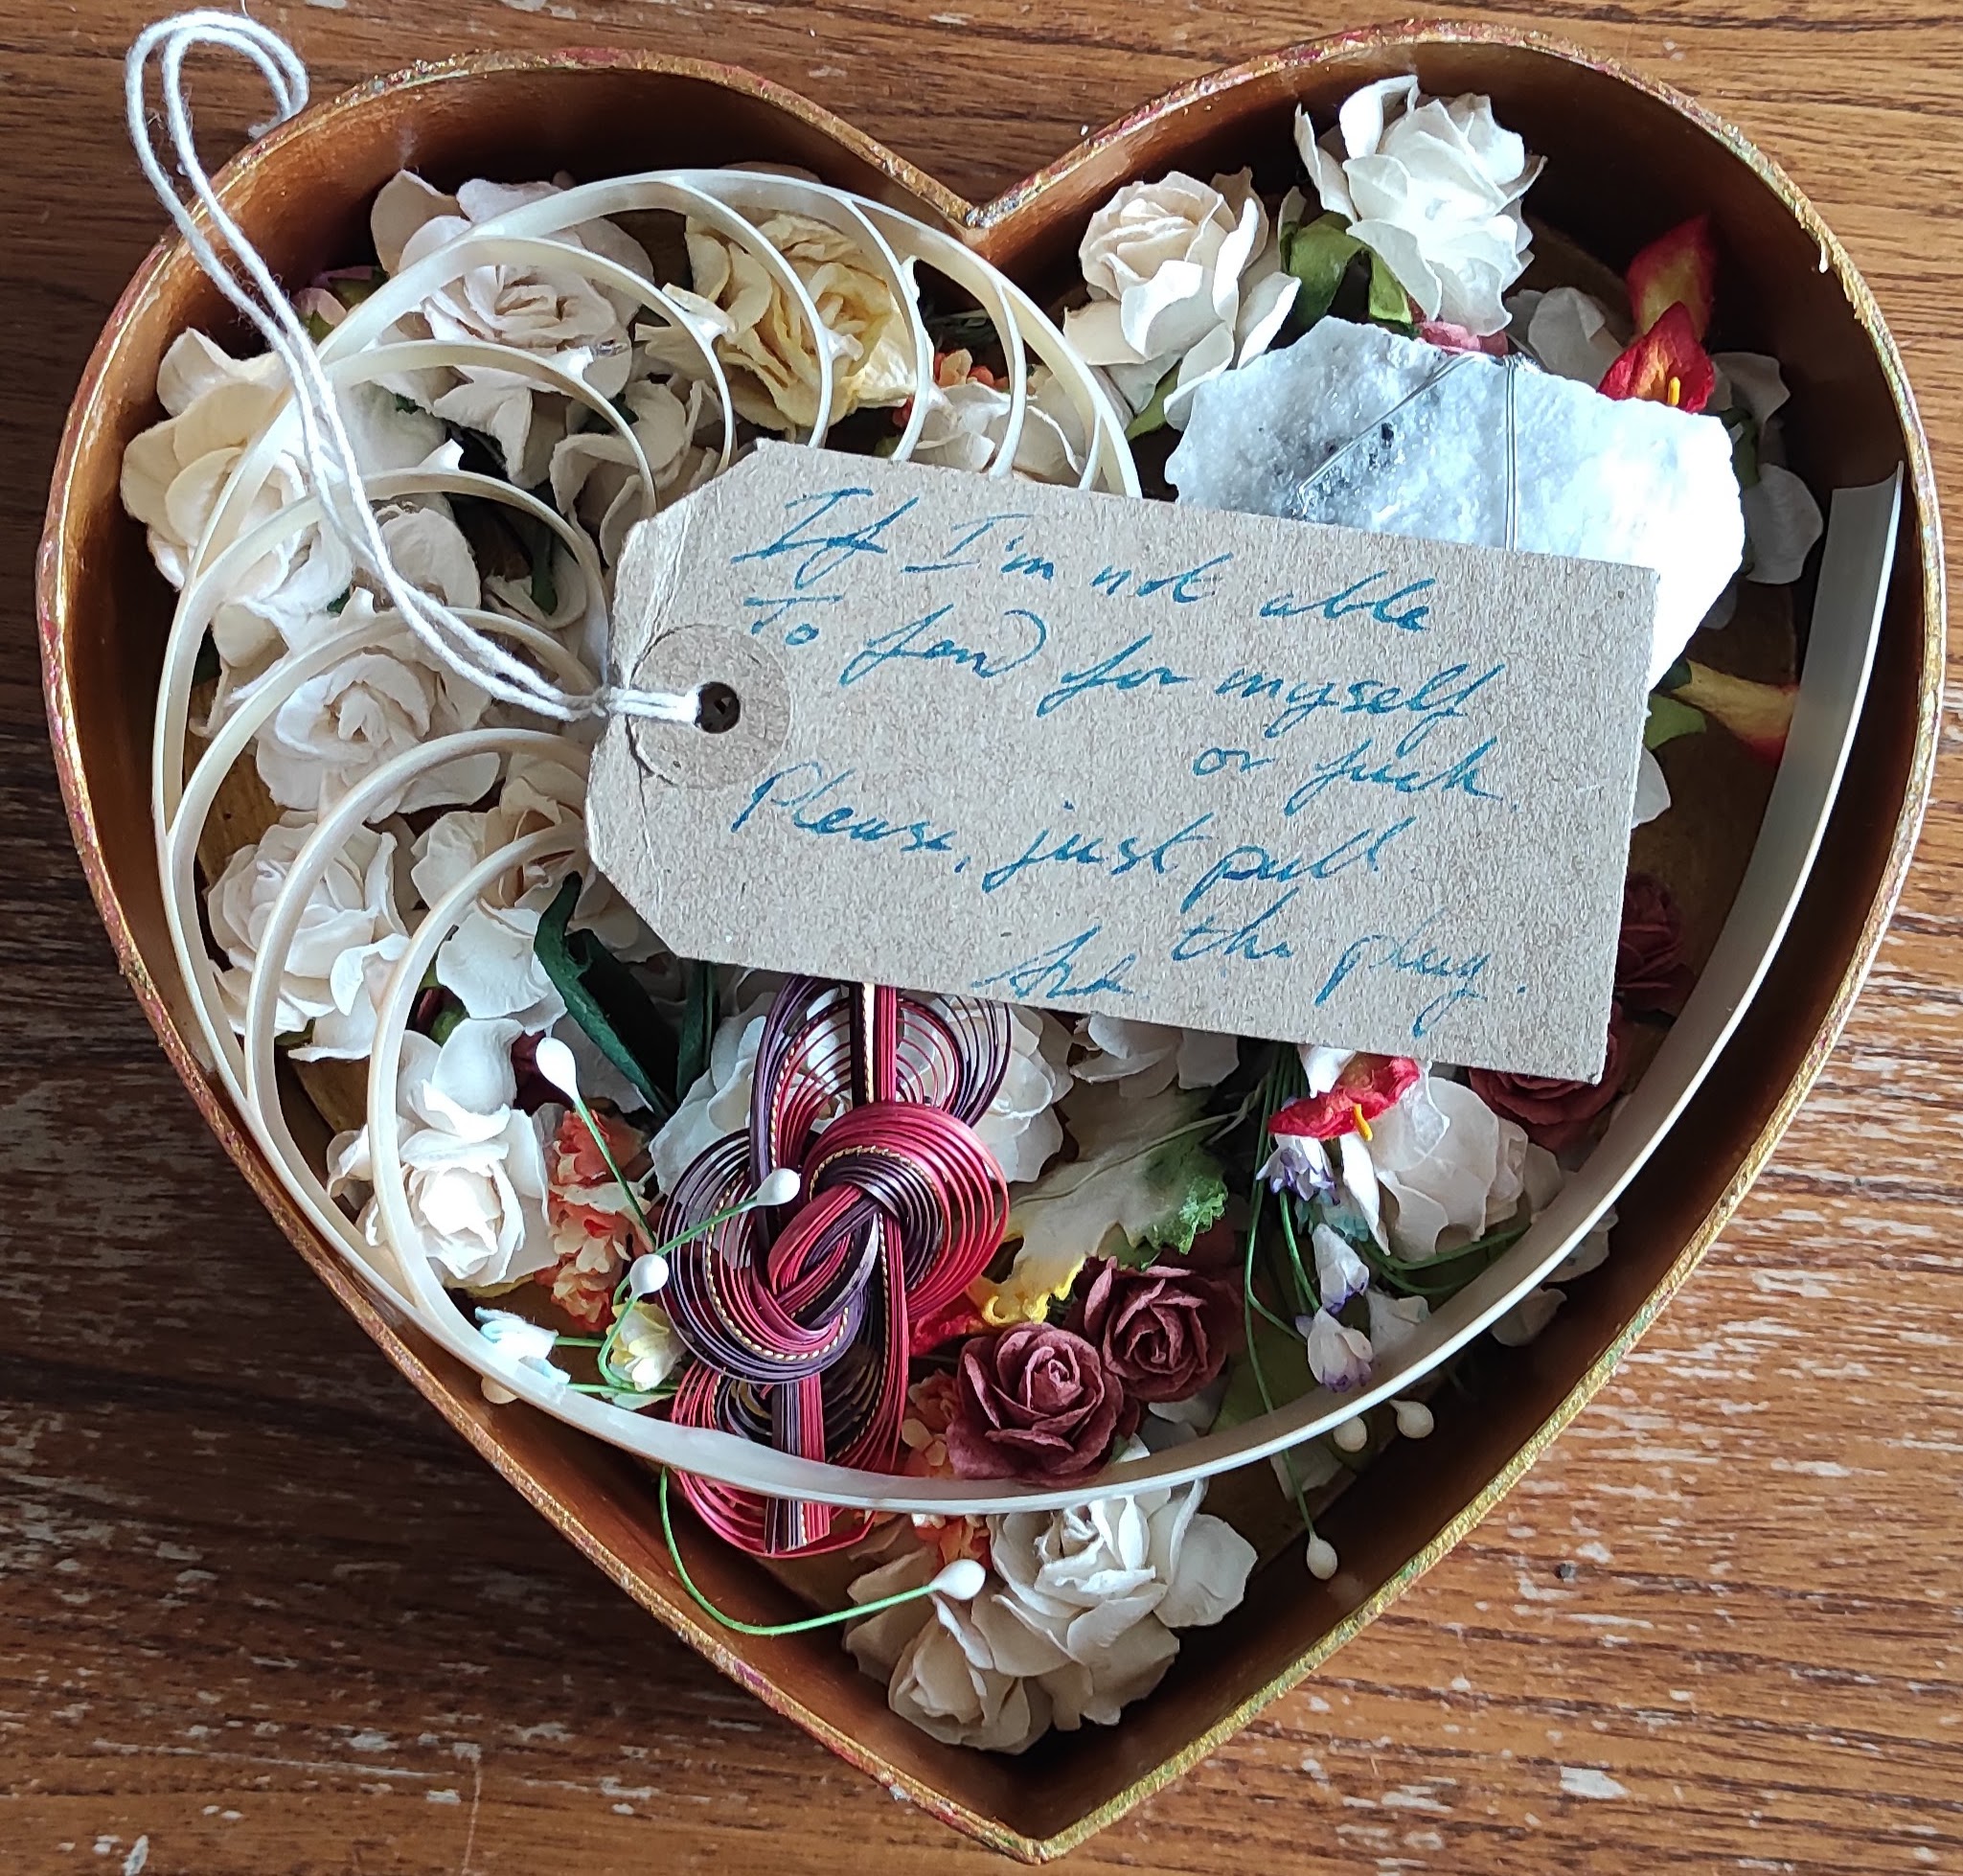 If I'm not able
To fend for myself
or fuck.
Please, just pull
the plug.